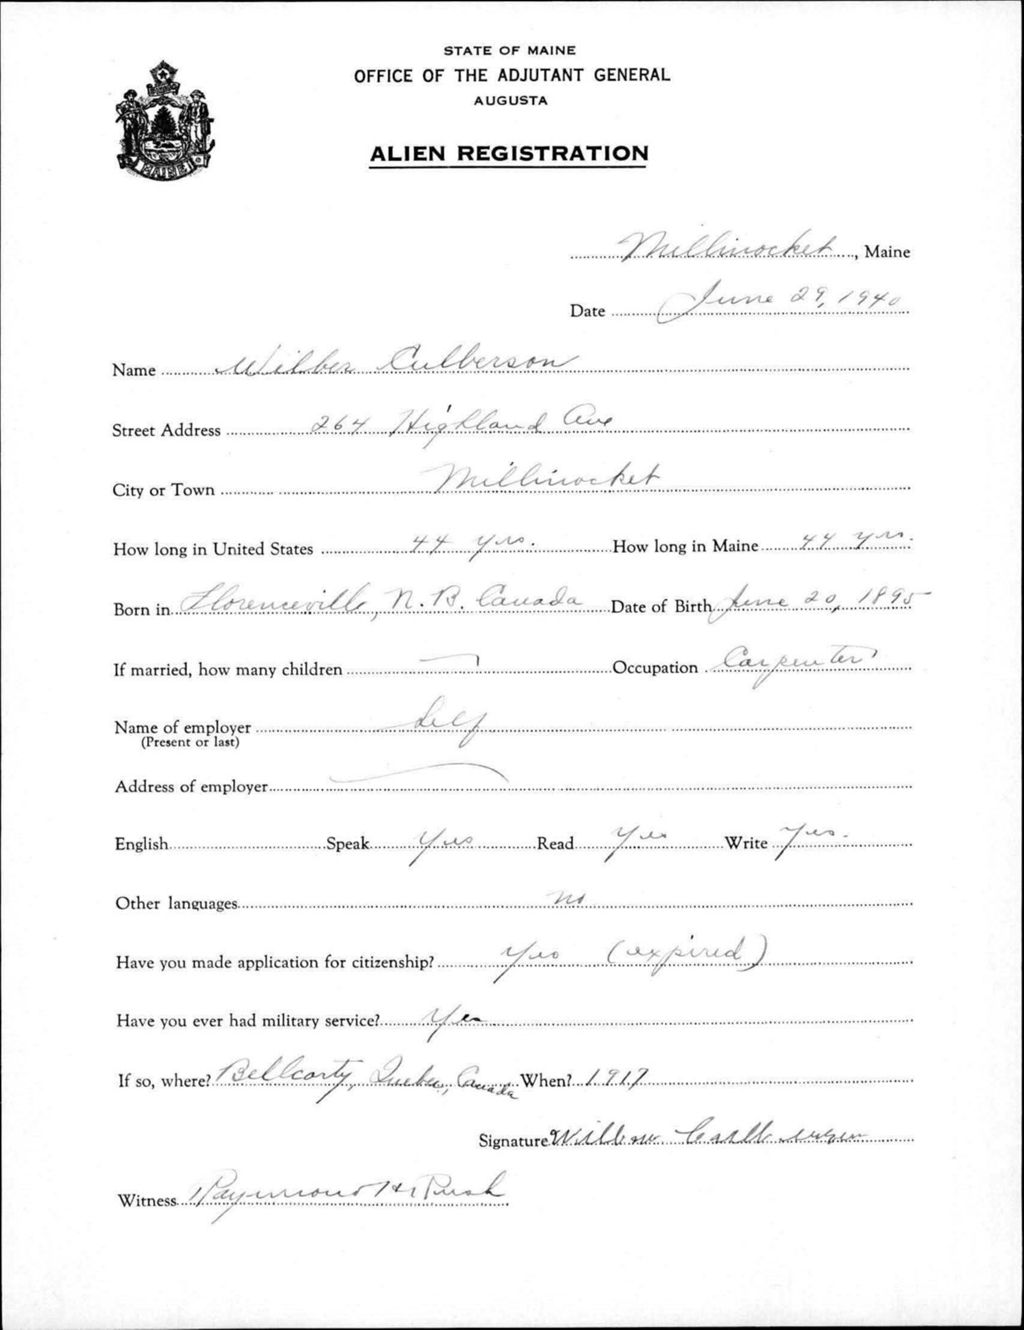 STATE OF MAINE
OFFICE OF THE ADJUTANT GENERAL
AUGUSTA
ALIEN REGISTRATION
MAINE
Millinocket, Maine
Date June 29, 1940
Name Wilber Culberson
Street Address 264 Highland Ave
City or Town Millinocket
How long in United States 44 yrs. How long in Maine 44 yrs.
Born in Florenceville, N.B. Canada Date of Birth June 20, 1895
If married, how many children Occupation Carpenter
Name of employer Self
(Present or last)
Address of employer
English Speak Yes Read Yes Write Yes.
Other languages no
Have you made application for citizenship? Yes (expired)
Have you ever had military service? Yes
If so, where? Bellcarty, Quebec, Canada When? 1917
Signature
Witness Raymond H Rush